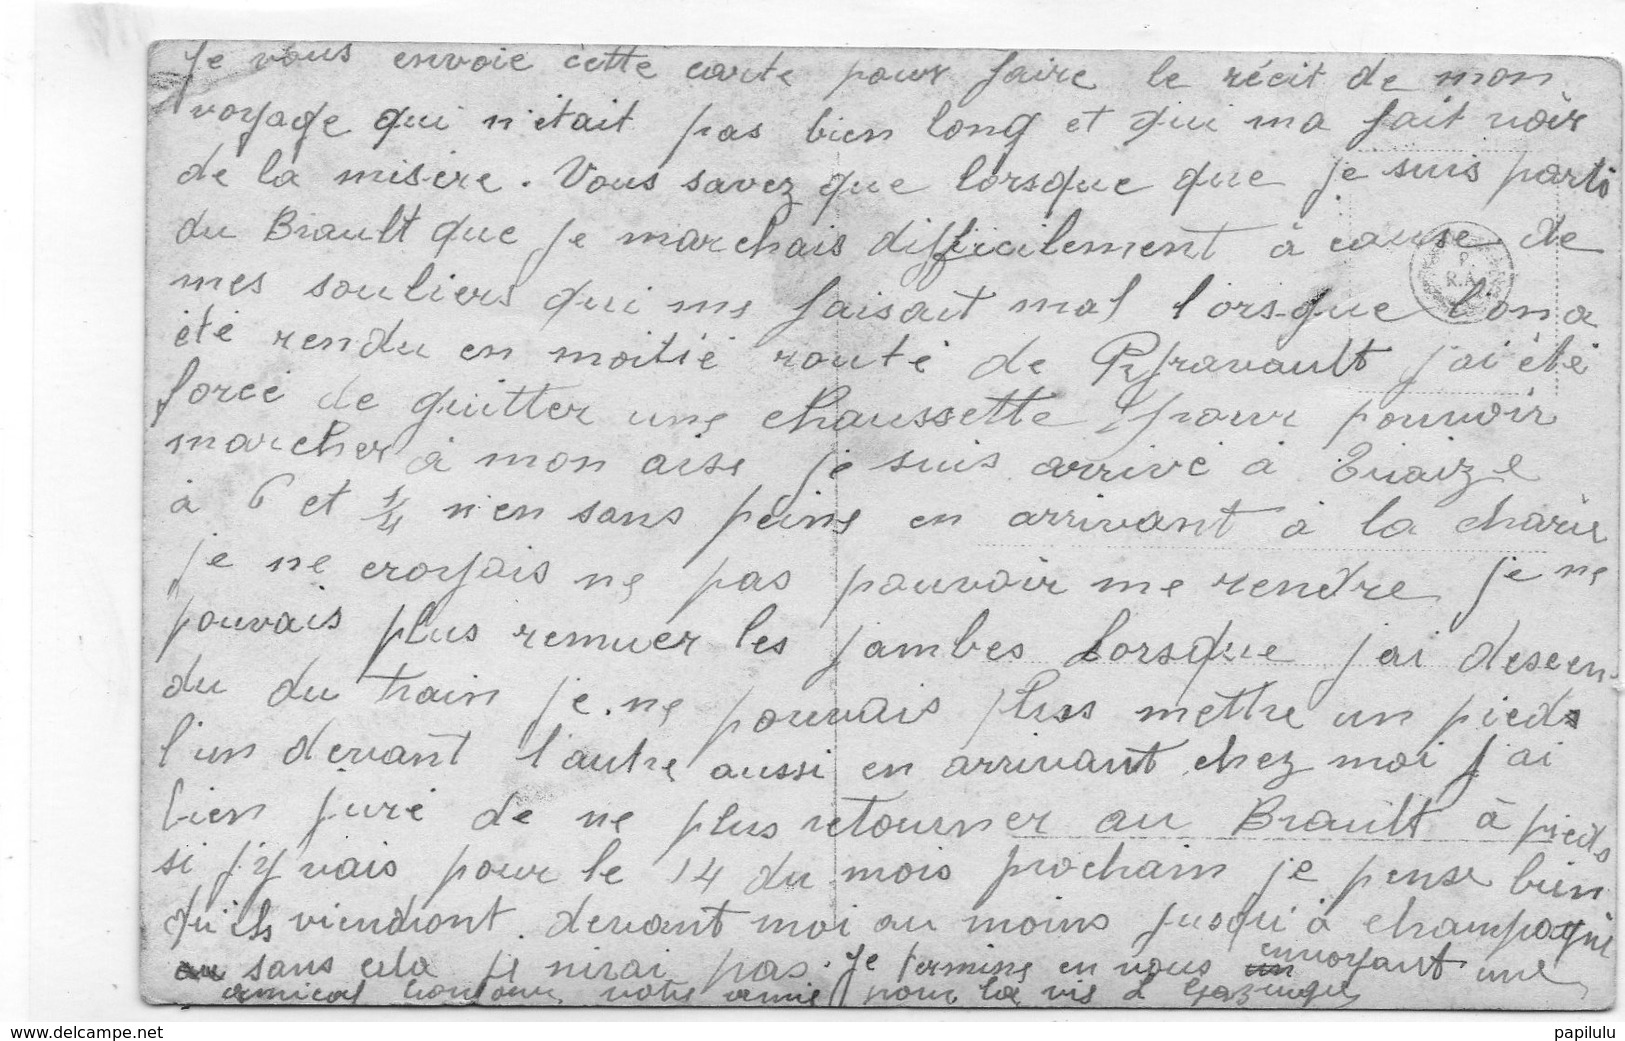 Je vous envoie cette carte pour faire le récit de mon
voyage qui n'était pas bien long et qui ma fait voir
de la misère. Vous savez que lorsque que je suis parti
du Brault que je marchais difficilement à cause de
mes souliers qui me faisait mal lorsque l'on a
été rendu en moitié route de Puyravault j'ai été
forcé de quitter une chaussette pour pouvoir
marcher à mon aise je suis arrivé à Triaize
à 6 et 1/4 n'en sans peine en arrivant à la
je ne croyais ne pas pouvoir me rendre je ne
pouvais plus remuer les jambes Lorsque j'ai descen-
du du train je ne pouvais plus mettre un pieds
l'un devant l'autre aussi en arrivant chez moi j'ai
bien juré de ne plus retourner au Brault à pieds
si j'y vais pour le 14 du mois prochain je pense bien
qu'ils viendront devant moi au moins jusqu'à champagné
sans cela je nirai pas. Je termine en vous envoyant une
amical bonjour votre amie pour la vie
P.
R.A.
www.delcampe.net
papilulu